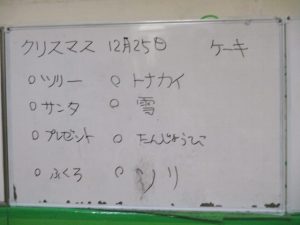 クリスマス 12月25日 ケーキ
○ツリー ○トナカイ
○サンタ ○雪
○プレゼント ○たんじょうひ
○ふくろ ○ソリ